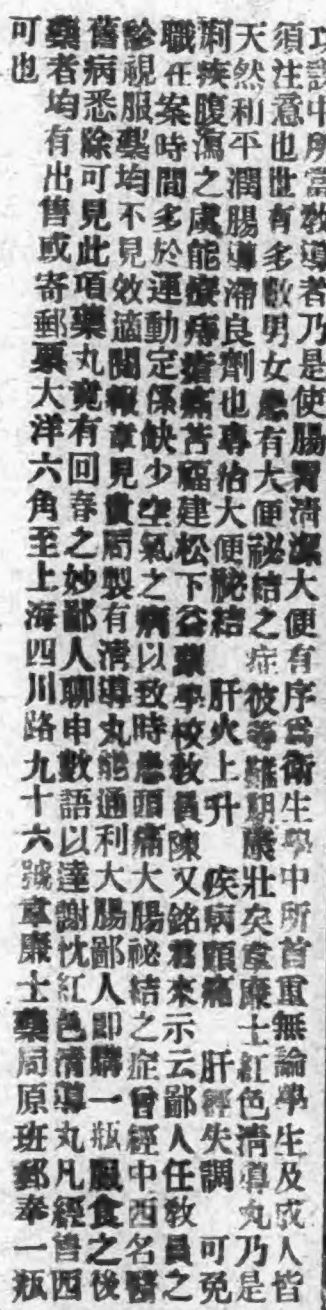 功課中所當教導者乃是使腸胃清潔大便有序爲衛生學中所首重無論學生及成人皆
須注意也世有多數男女患有大便祕結之症彼等難期康壯矣韋廉士紅色清導丸乃是
天然和平潤腸導滯良劑也專治大便祕結 肝火上升 疾病頭痛 肝經失調 可免
痢疾腹瀉之虞能療痔瘡痛苦福建松下谷蘭學校敎員陳又銘君來示云鄙人任敎員之
職在案時間多於運動定係缺少空氣之病以致時患頭痛大腸祕結之症曾經中西名醫
診視服藥均不見效適閱報章見貴局製有清導丸能通利大腸鄙人即購一瓶服食之後
舊病悉除可見此項藥丸竟有回春之妙鄙人聊申數語以達謝忱紅色清導丸凡經售西
藥者均有出售或寄郵票大洋六角至上海四川路九十六號韋廉士藥局原班郵奉一瓶
可也